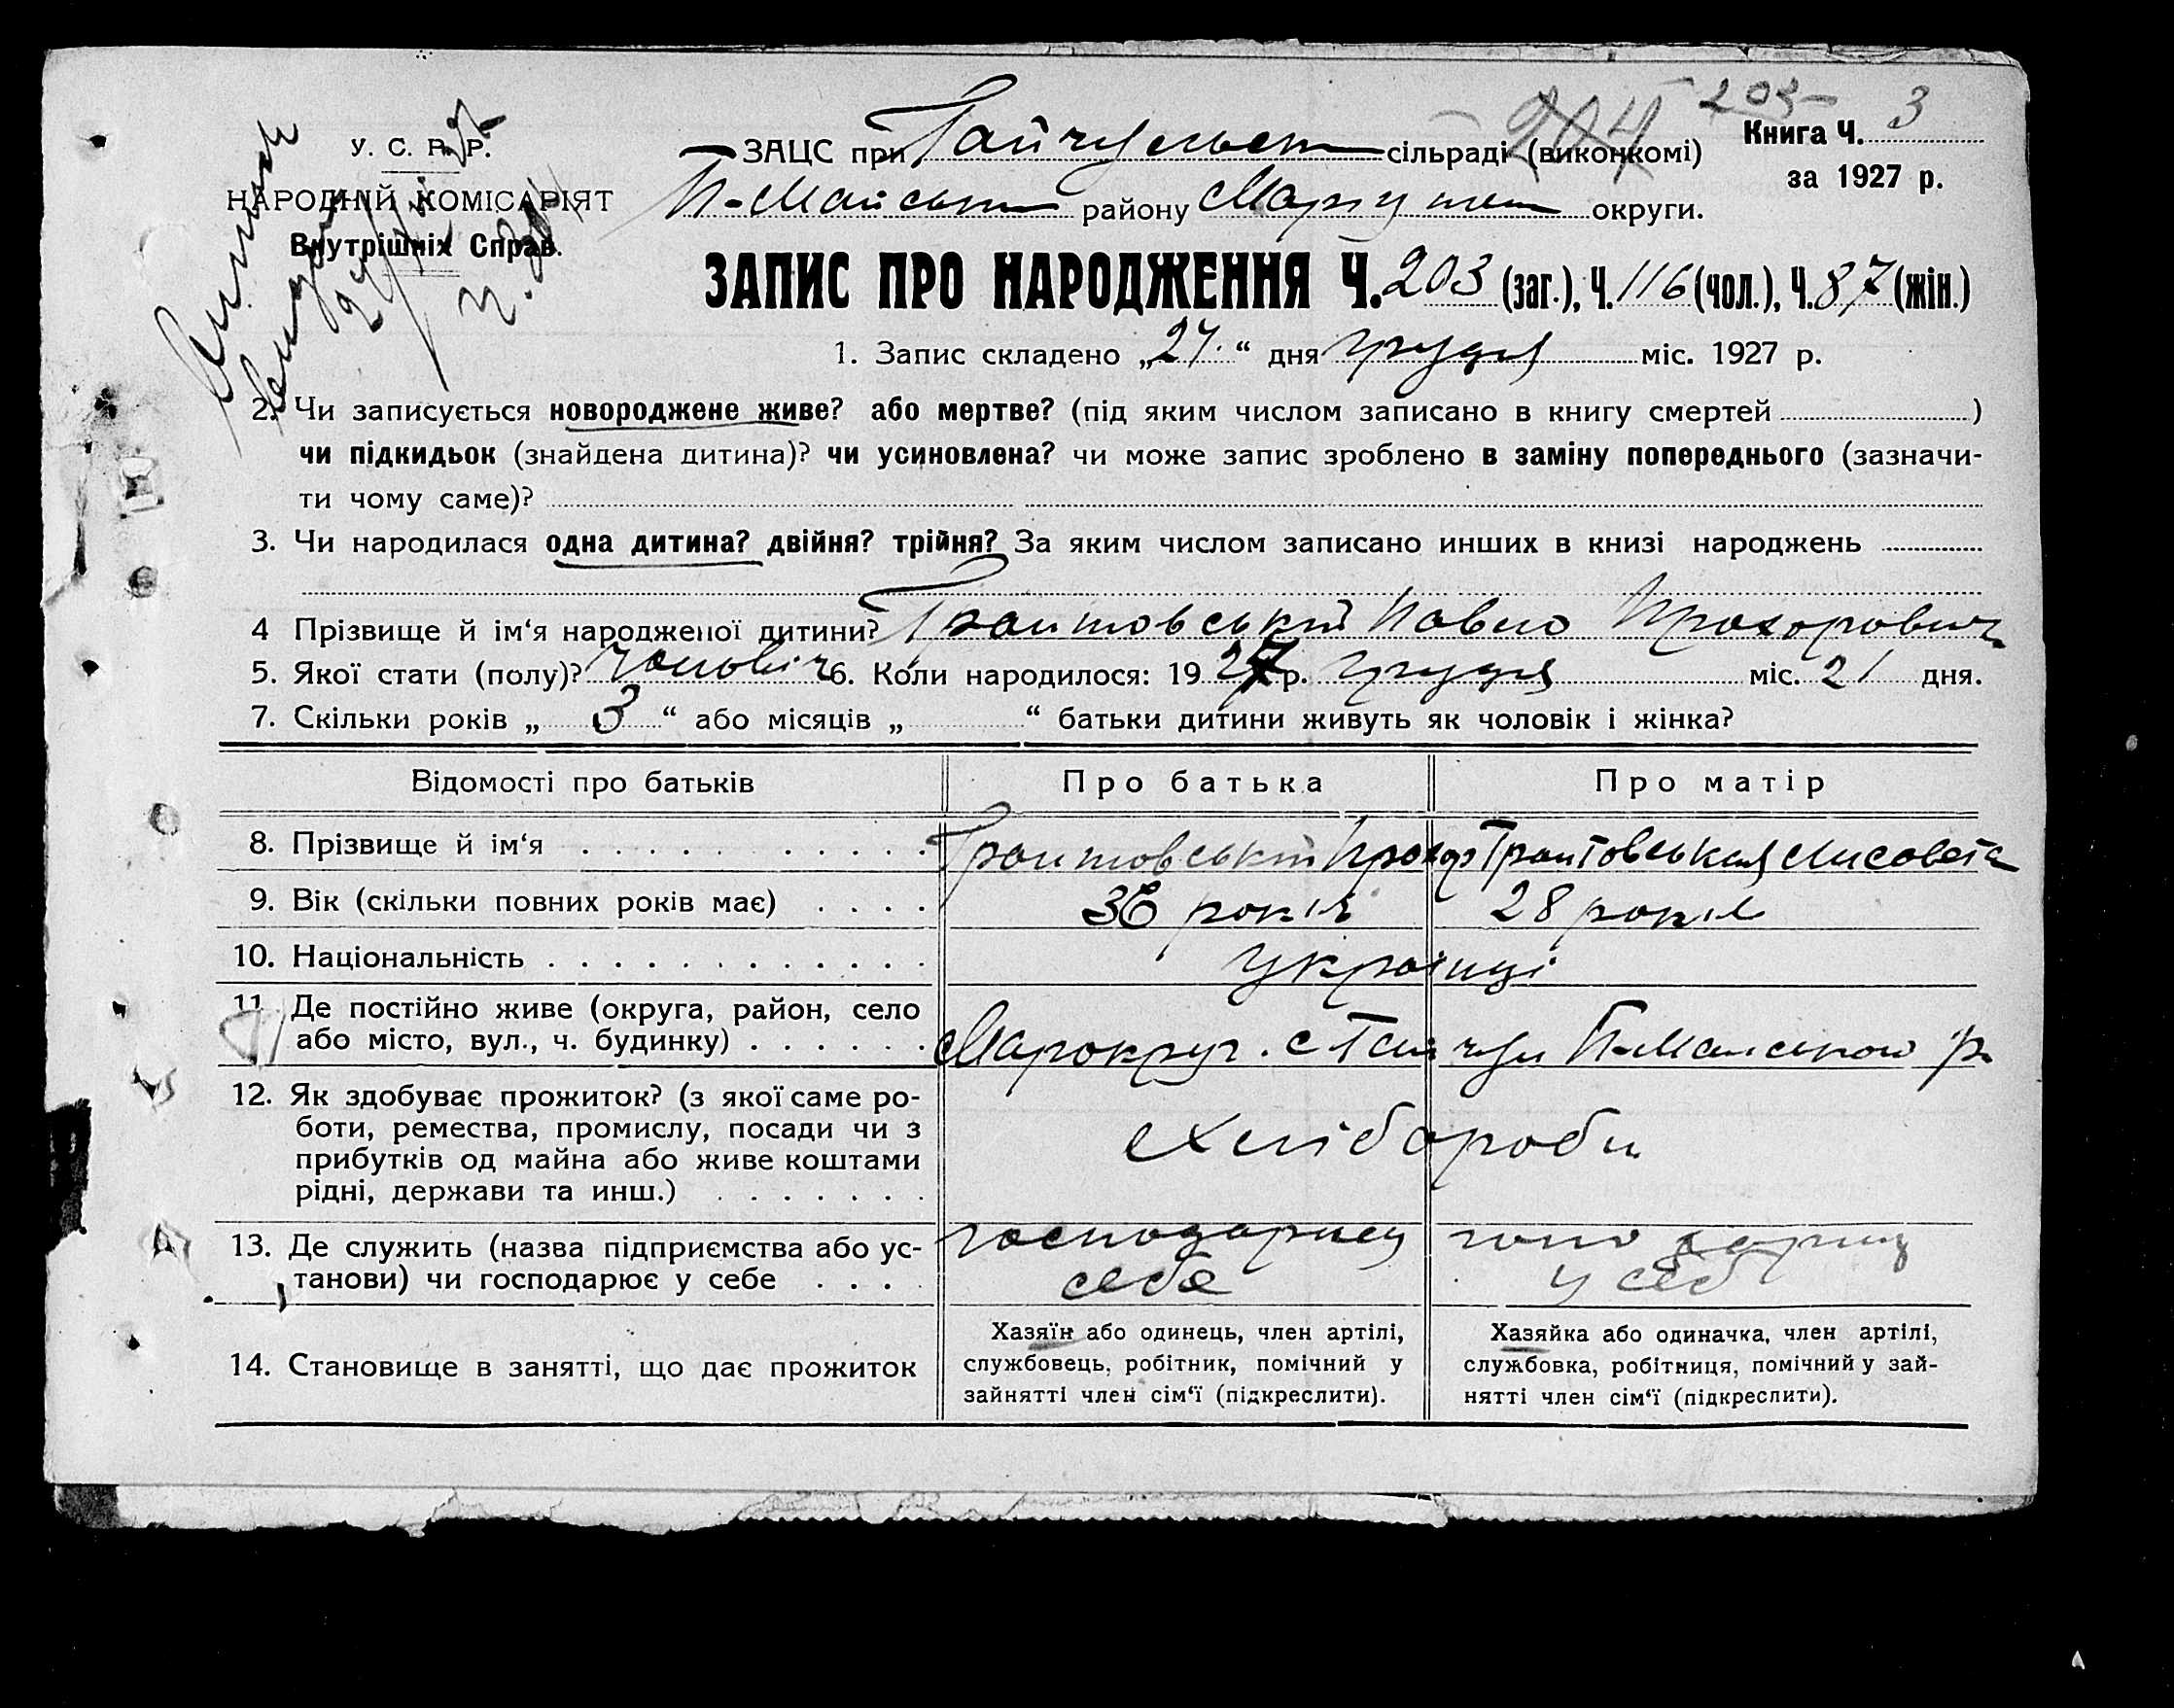 204 203 3
У. С. Р. Р. ЗАЦС при Гайчульськ сільраді (виконкомі) Книга Ч.
НАРОДНІЙ КОМІСАРІЯТ П-Майськ району Маріупол округи. за 1927 р.
Внутрішніх Справ.
ЗАПИС ПРО НАРОДЖЕННЯ Ч. 203 (заг.), Ч. 116 (чол.), Ч. 87 (жін.)
1. Запис складено „27.“ дня грудня міс. 1927 р.
2. Чи записується новороджене живе? або мертве? (під яким числом записано в книгу смертей )
чи підкидьок (знайдена дитина)? чи усиновлена? чи може запис зроблено в заміну попереднього (зазначи-
ти чому саме)?
3. Чи народилася одна дитина? двійня? трійня? За яким числом записано инших в книзі народжень
4 Прізвище й ім‘я народженої дитини? Траштовський Павло Прохорович
5. Якої стати (полу)? чоловіч 6. Коли народилося: 1927 р. грудня міс. 21 дня.
7. Скільки років „ 3 “ або місяців „ “ батьки дитини живуть як чоловік і жінка?
Відомості про батьків Про батька Про матір
8. Прізвище й ім‘я Траштовський Прохор Траштовськая Лисовета
9. Вік (скільки повних років має) 36 років 28 років
10. Національність українці
11. Де постійно живе (округа, район, село
або місто, вул., ч. будинку) Марокруг. с Гайчул П-Майського р.
12. Як здобуває прожиток? (з якої саме ро-
боти, ремества, промислу, посади чи з
прибутків од майна або живе коштами
рідні, держави та инш.) хлібороби
13. Де служить (назва підприємства або ус-
танови) чи господарює у себе
себе у себ
14. Становище в занятті, що дає прожиток
Хазяїн або одинець, член артілі,
службовець, робітник, помічний у
зайнятті член сім‘ї (підкреслити).
Хазяйка або одиначка, член артілі,
службовка, робітниця, помічний у зай-
нятті член сім‘ї (підкреслити).